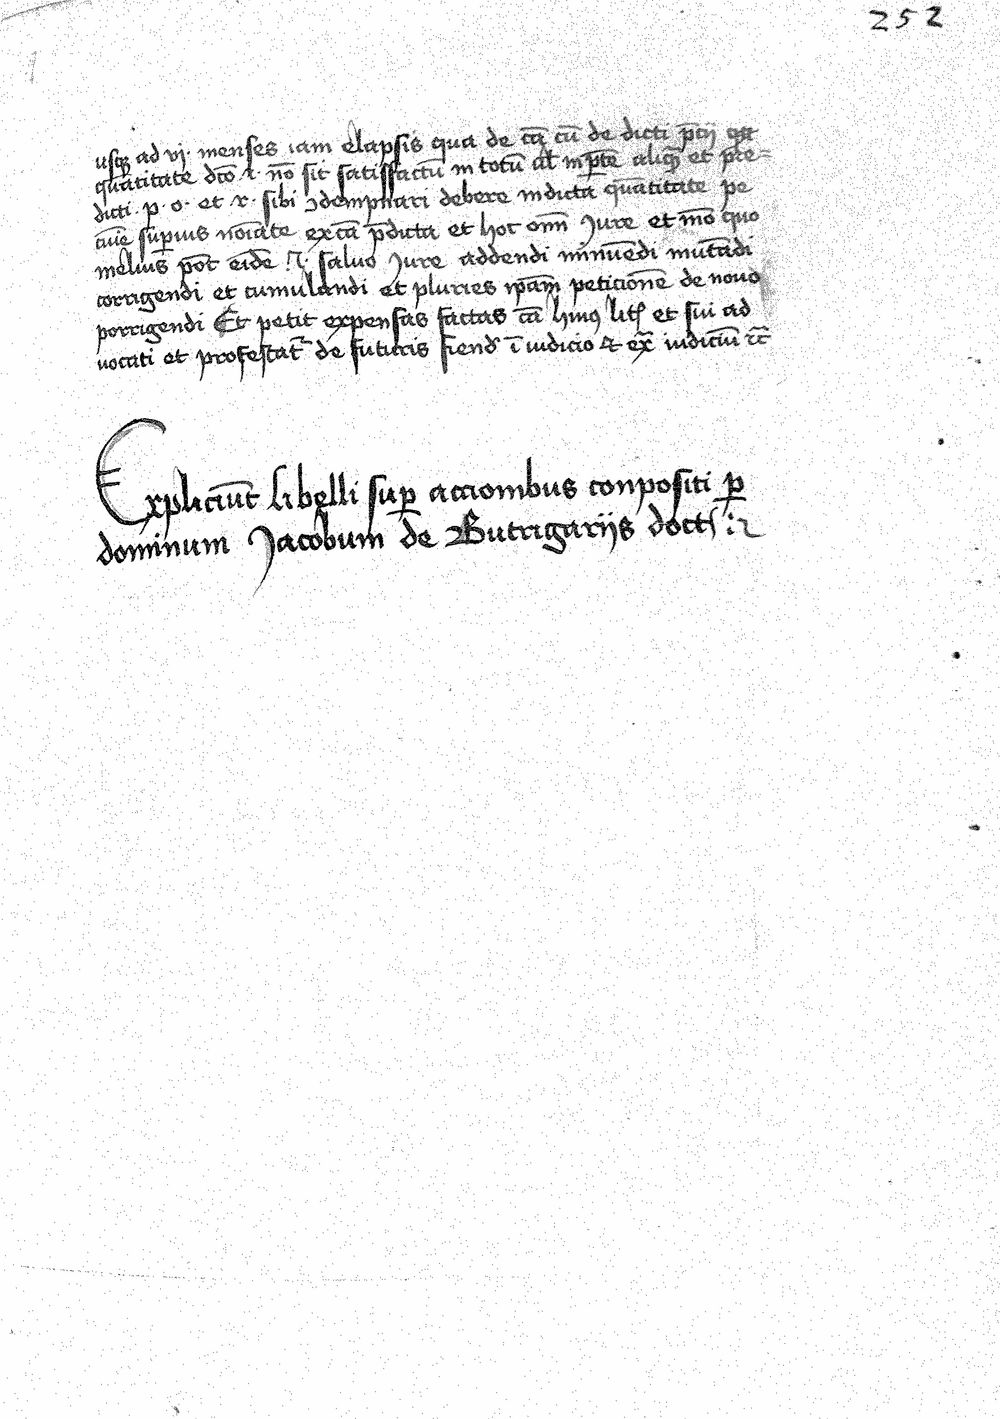 252
usq̄ ad vj. menses iam elapsis qua de cā cū de dicti p̄cij
quātitate dc̄o A. nō sit satisfactū in totū al̄ in p̄te aliq̄ et pre=
dicti . p . o . et x . sibi ꝯdempnari debere in dicta quātitate pe
cūie superius noīate ex cā p̄dicta et hoc om̄i Jure et mō quo
melius pōt eidē salvo Jure addendi minuēdi mutādi
corrigendi et cumulandi et pluries ip̄am peticionē de novo
porrigendi Et petit expensas factas cā hui9 lit̄ et sui ad
vocati et profestat̄ de futuris fiend̄ ī iudicio & ex̄ iudiciū
Expliciūt Libelli sup̄ accionibus conpositi ꝑ
dominum Jacobum de Butrigarijs doct̄